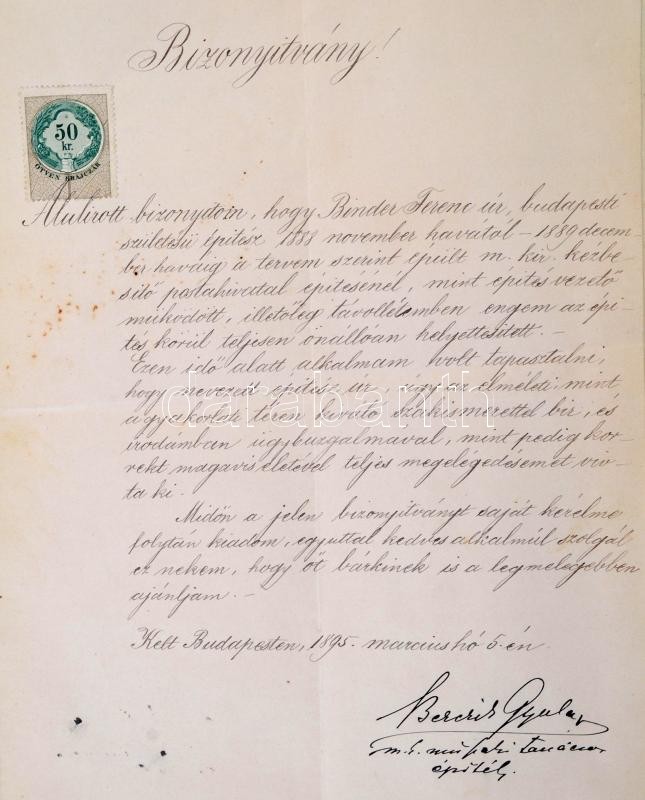 Bizonyitvány!
50
kr.
ÖTVEN KRAJCZÁR
Alulirott bizonyitom, hogy Binder Ferenc úr, budapesti
születésü épitész 1888 november havától - 1889 decem-
ber haváig a tervem szerint épült m. kir. kézbe-
sitő postahivatal épitésénél, mint épitésvezető
müködött, illetőleg távollétemben engem az épi-
tés körül teljesen önállóan helyettesitett. -
Ezen idő alatt alkalmam volt tapasztalni,
hogy nevezett épitész úr, úgy az elméleti, mint
a gyakorlati téren kiváló szakismerettel bir, és
irodámban ügybuzgalmával, mint pedig kor-
rekt magaviseletével teljes megelégedésemet viv-
ta ki.
darabanth
Midőn a jelen bizonyitványt saját kérelme
folytán kiadom, egyuttal kedves alkalmúl szolgál
ez nekem, hogy őt bárkinek is a legmelegebben
ajánljam. -
Kelt Budapesten, 1895. marcius hó 5-én.
Berczik Gyula
m. k. müszaki tanácsos
épitész.